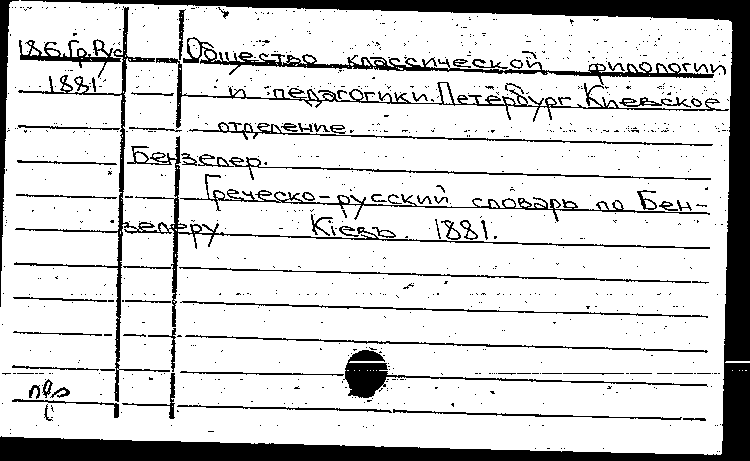 186.Гр.Рус Общество классической филологии
1881 и педагогики. Петербург. Киевское
отделение.
Бензелер.
Греческо-русский словарь по Бен-
зелеру. Кіевъ. 1881.